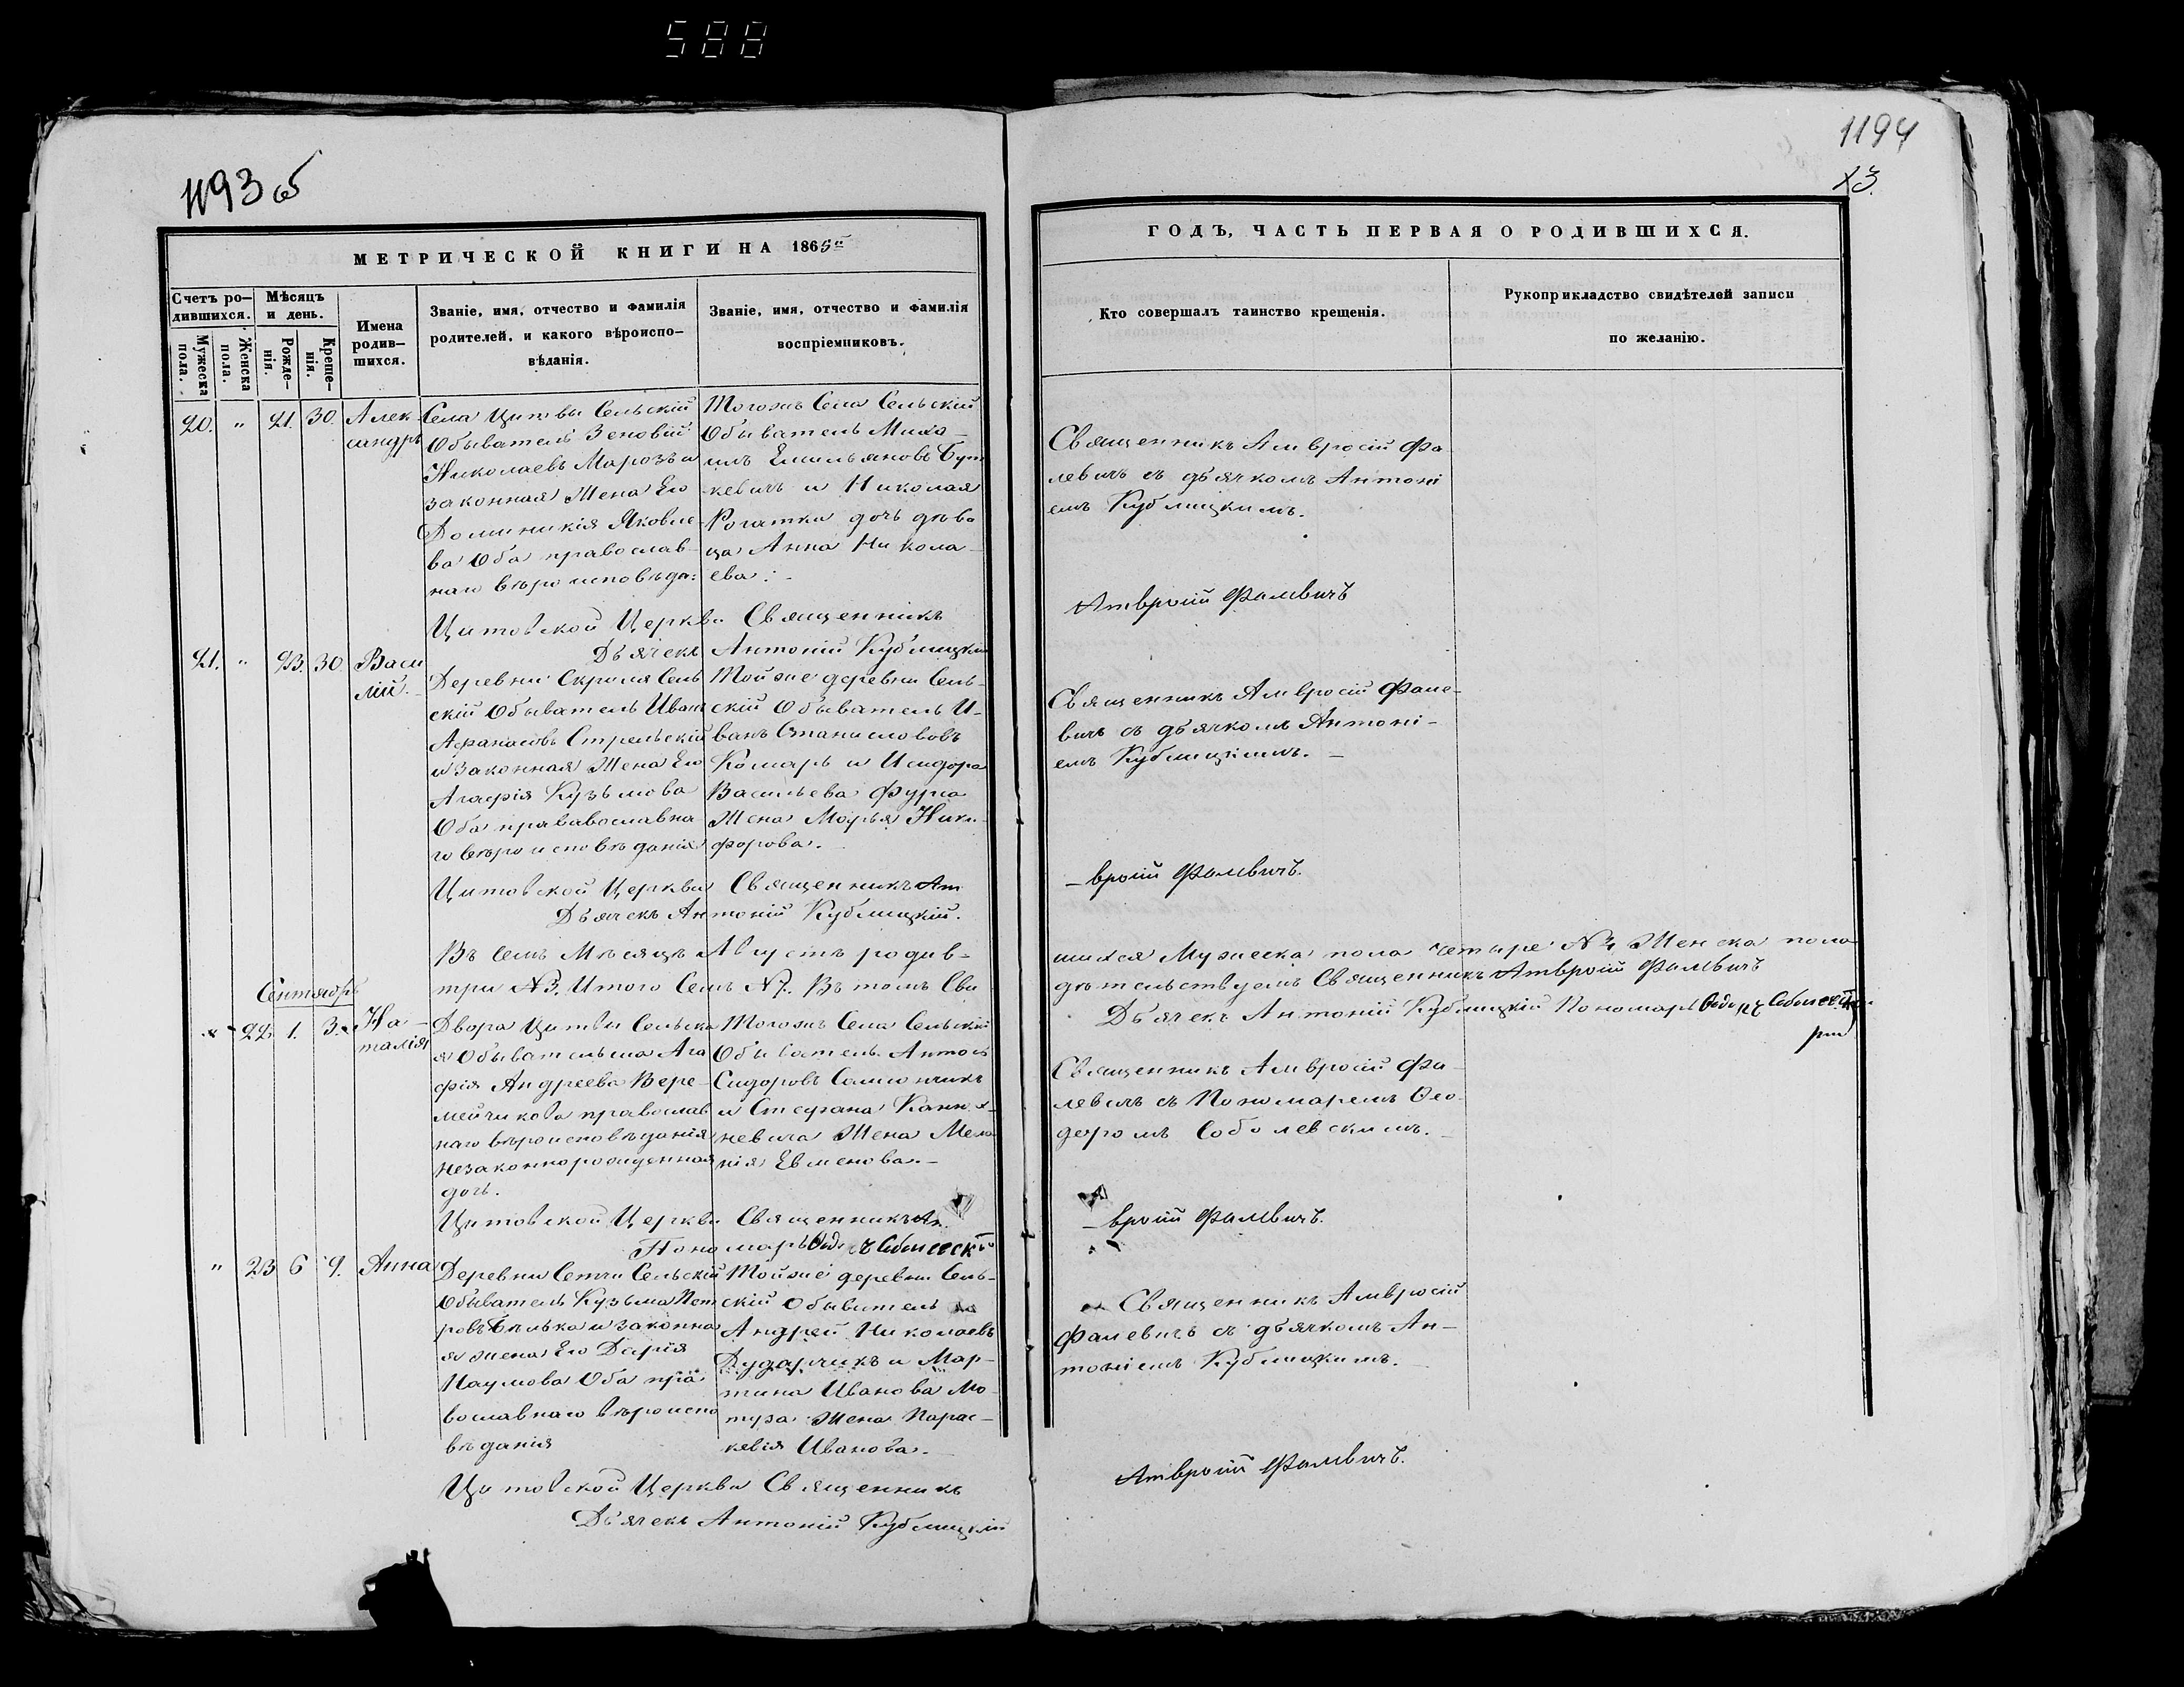 588
1193 об
1194
13.
МЕТРИЧЕСКОЙ КНИГИ НА 1865й
ГОДЪ, ЧАСТЬ ПЕРВАЯ О РОДИВШИХСЯ.
Счетъ ро-
дившихся.
Мужеска
пола.
Женска
пола.
Мѣсяцъ
и день.
Рожде-
нія.
Креще-
нія.
Имена
родив-
шихся.
Званіе, имя, отчество и фамилія
родителей, и какого вѣроиспо-
вѣданія.
Званіе, имя, отчество и фамилія
воспріемниковъ.
Кто совершалъ таинство крещенія.
Рукоприкладство свидѣтелей записи
по желанію.
20. " 21. 30. Алек
сандръ
Села Цитвы Сельскій
Обыватель Зеновій
Николаевъ Марозъ и
законная Жена Его
Доминикія Яковле-
ва Оба православ-
наго вѣроисповѣда:
Тогожъ Села Сельскій
Обыватель Миха-
илъ Емильяновъ Бут
кевичъ и Николая
Рогатки дочь дѣви
ца Анна Никола-
ева:-
Священникъ Амвросій Фа
левичъ съ дьячкомъ Антоні
емъ Кублицкимъ.
Цитовской Церкви Священникъ Амвросій Фалевичъ
Дьячекъ Антоній Кублицкій
21. " 23. 30 Васи
лій.
Деревни Скрыля Сель
скій Обыватель Иванъ
Афанасовъ Стрельскій
и законная Жена Его
Агафія Кузьмова
Оба прававославна
го вѣроисповѣданія
Тойже деревни Сель-
скій Обыватель И-
ванъ Станислововъ
Комаръ и Исидора
Васильева Фурса
Жена Марья Ники-
форова.
Священникъ Амвросій Фале-
вичъ съ дьячкомъ Антоні-
емъ Кублицкимъ.
Цитовской Церкви Священникъ Ам-вросій Фалевичъ.
Дьячекъ Антоній Кублицкій.
Въ семъ Мѣсяцѣ Августѣ родив-шихся Мужеска пола четыре №4 Женска пола
три №3. Итого Семь №7. Въ томъ Сви дѣтельствуемъ Священникъ Амвросій Фалевичъ
Дьячекъ Антоній Кублицкій Пономарь
Сентябрь
22. 1. 3. На-
талія
Двора Цитвы Сельска
я Обывательша Ага
фія Андреева Вере-
мейчикова православ
наго вѣроисповѣданія
незаконнорожденная
дочь.
Тогожъ Села Сельскій
Обыватель Антонъ
Сидоровъ
и Стефана
Жена Мела
нія Евменова.-
Священникъ Амвросій Фа-
левичъ съ Пономаремъ Ѳео-
доромъ Соболевскимъ.
Цитовской Церкви Священникъ Ам-вросій Фалевичъ.
Пономарь
" 23 6 9. Анна
Деревни Сетчи Сельскій
Обыватель Кузьма Пет
ровъ Бѣлька и законна
я жена Его Дарія
Наумова Оба пра
вославнаго вѣроиспо
вѣданія
Тойже деревни Сель-
скій Обыватель
Андрей Николаевъ
Дударчикъ и Мар-
тина Иванова Мо
Жена Парас-
кевія Иванова.
Священникъ Амвросій
Фалевичъ съ дьячкомъ Ан-
тоніемъ Кублицкимъ.
Цитовской Церкви Священникъ Амвросій Фалевичъ.
Дьячекъ Антоній Кублицкій